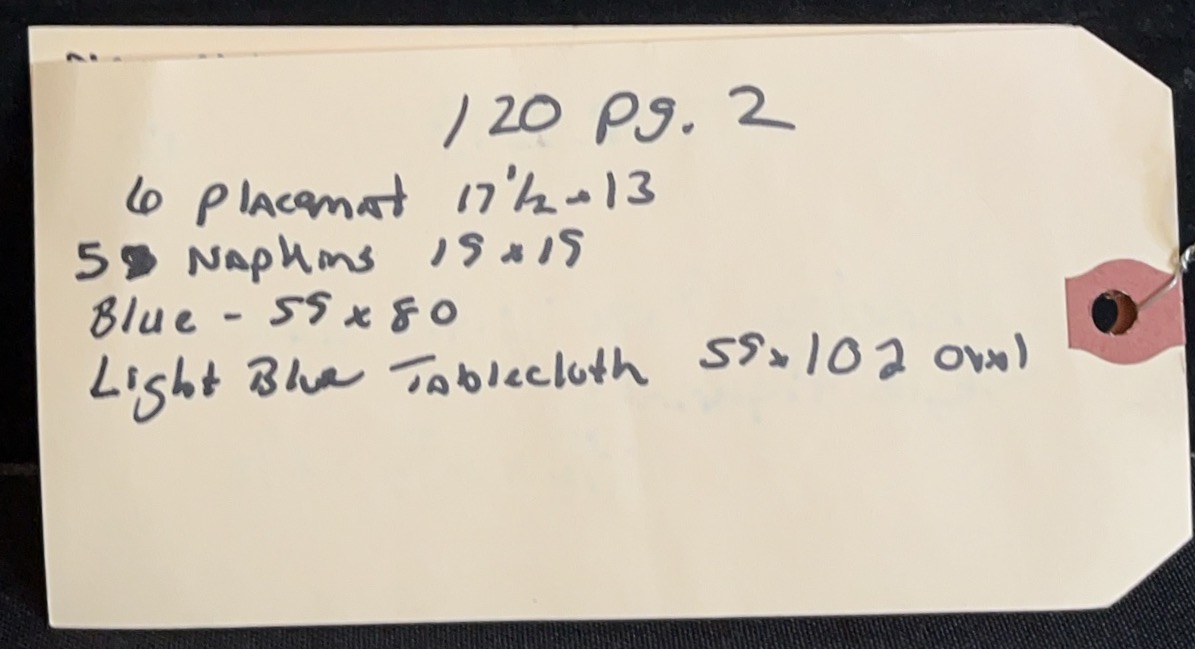 120 Pg. 2
6 Placemat 17 1/2 x 13
5 Napkins 19 x 19
Blue - 59 x 80
Light Blue Tablecloth 59 x 102 oval